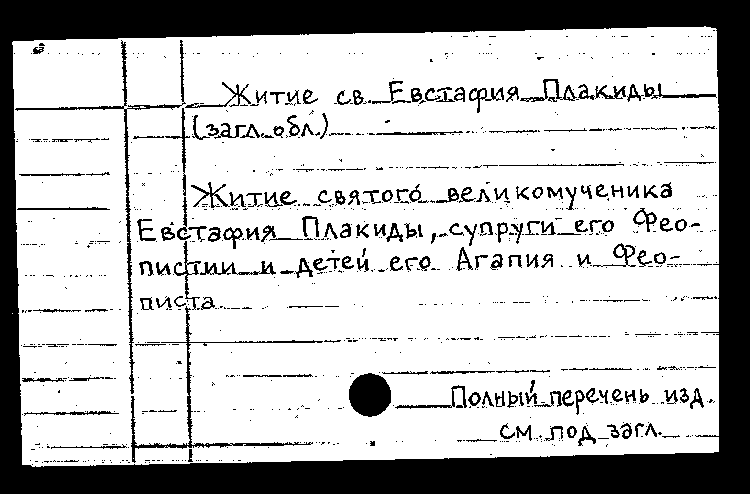 Житие св. Евстафия Плакиды
(загл. обл.)
Житие святого великомученика
Евстафия Плакиды, супруги его Фео-
пистии и детей его Агапия и Фео-
писта
Полный перечень изд.
см. под загл.